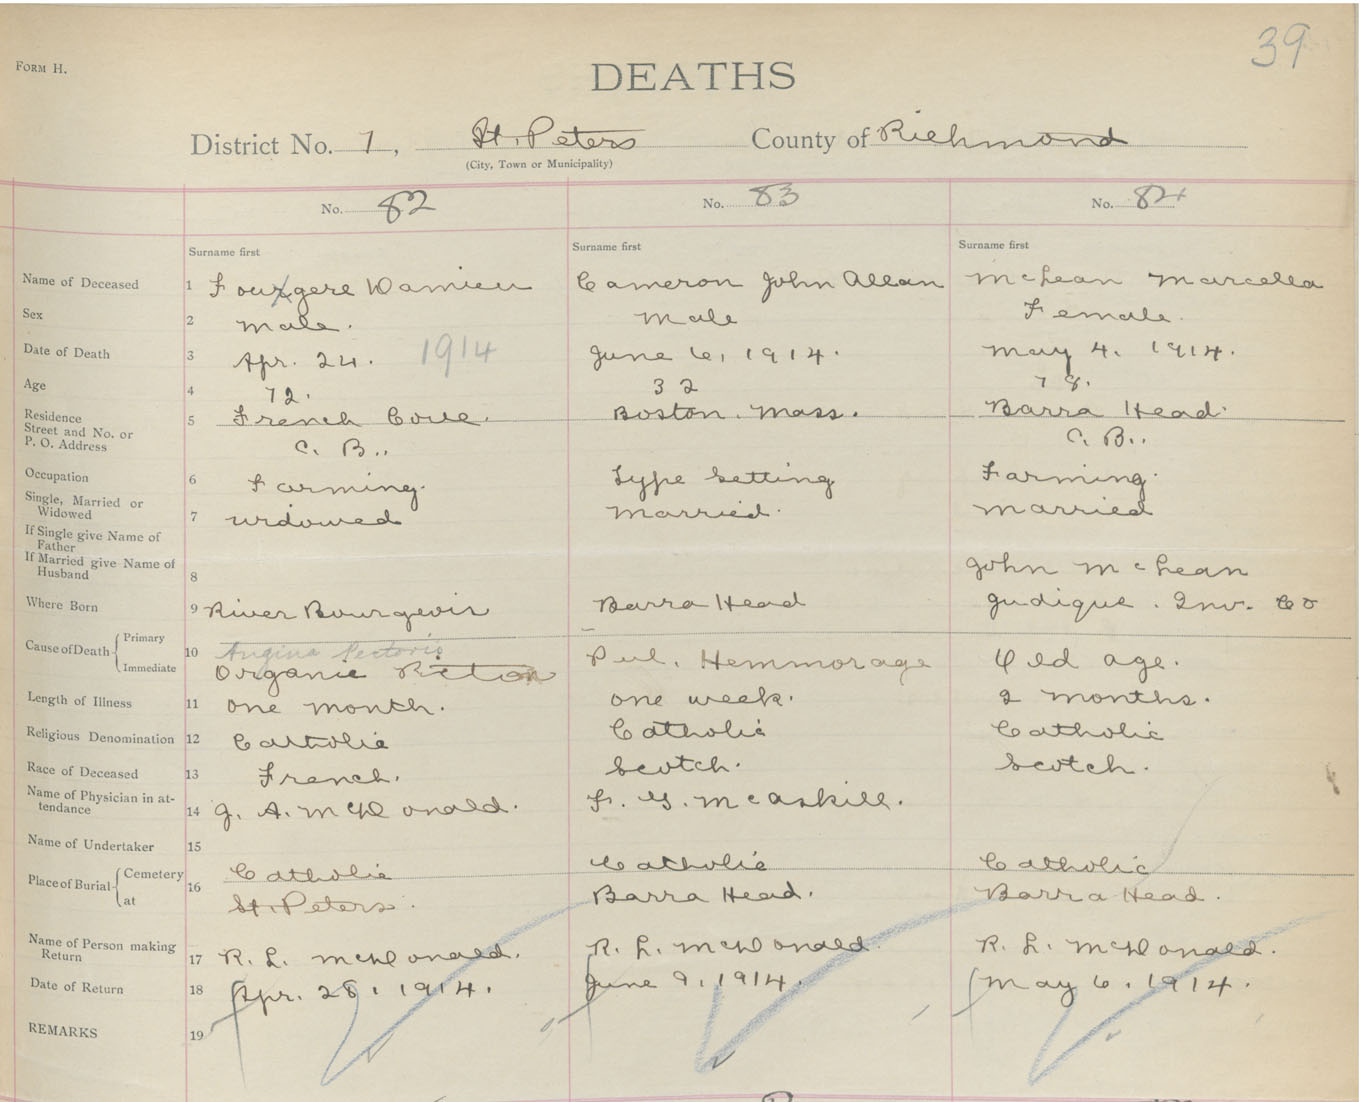 39
FORM H.
DEATHS
District No. 7, St. Peters County of Richmond
(City, Town or Municipality)
No. 82 No. 83 No. 84
Surname first Surname first Surname first
Name of Deceased 1 Fougere Damien Cameron John Allan McLean Marcella
Sex 2 male. male Female.
Date of Death 3 Apr. 24. 1914 June 6, 1914. May 4. 1914.
Age 4 72. 32 78.
Residence
Street and No. or
P. O. Address 5 French Cove. Boston. Mass. Barra Head.
C. B.. C. B..
Occupation 6 Farming. Type setting Farming.
Single, Married or
Widowed 7 widowed married. married
If Single give Name of
Father
If Married give Name of
Husband 8 John McLean
Where Born 9 River Bourgeois Barra Head Judique. Inv. Co
Cause of Death { Primary
Immediate 10 Angina Pectoris
Organic Pul. Hemmorage Old age.
Length of Illness 11 one month. one week. 2 months.
Religious Denomination 12 Catholic Catholic Catholic
Race of Deceased 13 French. Scotch. Scotch.
Name of Physician in at-
tendance 14 J. A. McDonald. F. G. McAskill.
Name of Undertaker 15
Place of Burial { Cemetery
at 16 Catholic Catholic Catholic
St. Peters. Barra Head. Barra Head.
Name of Person making
Return 17 R. L. McDonald. R. L. McDonald. R. L. McDonald.
Date of Return 18 Apr. 28. 1914. June 9, 1914. May 6. 1914.
REMARKS 19